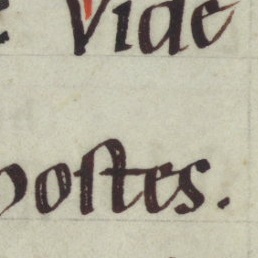 Vide
hoſtes.